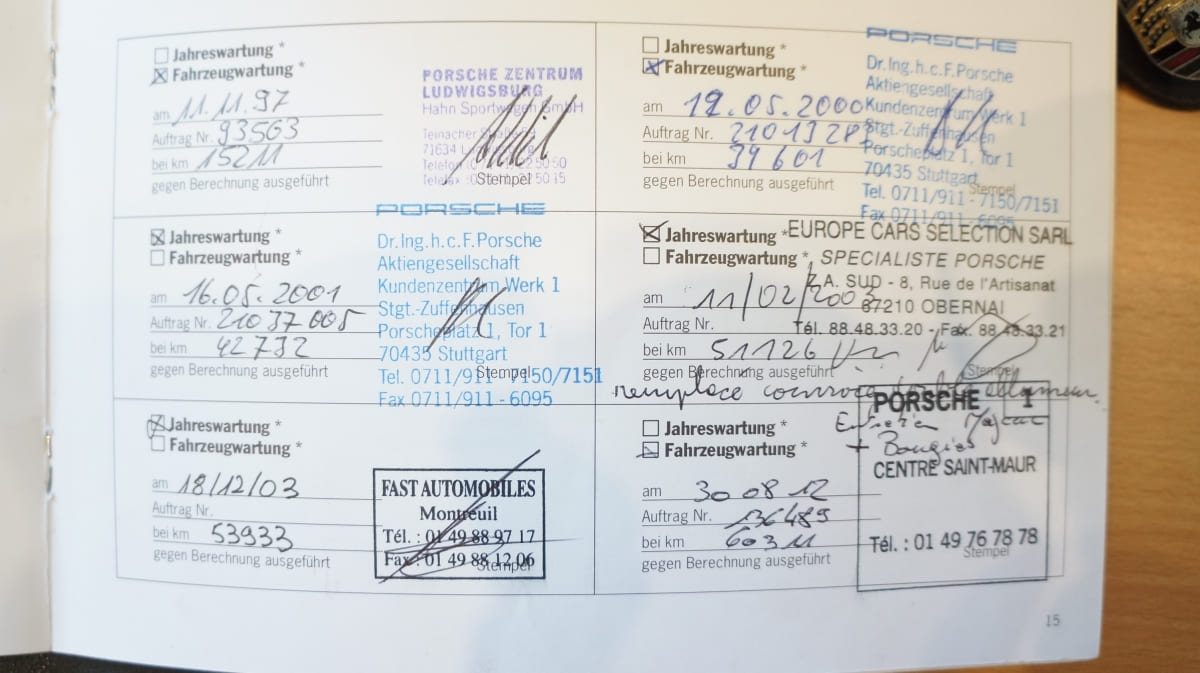 Jahreswartung *
Fahrzeugwartung *
am 11.11.97
Auftrag Nr. 93563
bei km 15211
gegen Berechnung ausgeführt
PORSCHE ZENTRUM
LUDWIGSBURG
Hahn Sportwagen GmbH
71634
Telefon
Stempel
Jahreswartung *
Fahrzeugwartung *
am 12.05.2000
Auftrag Nr.
bei km 39601
gegen Berechnung ausgeführt
PORSCHE
Dr.Ing.h.c.F.Porsche
Aktiengesellschaft
Kundenzentrum Werk 1
Stgt.-Zuffenhausen
Porscheplatz 1, Tor 1
70435 Stuttgart
Stempel
Tel. 0711/911-7150/7151
Fax 0711/911-6095
Jahreswartung *
Fahrzeugwartung *
am 16.05.2001
Auftrag Nr. 21037005
bei km 42732
gegen Berechnung ausgeführt
PORSCHE
Dr.Ing.h.c.F.Porsche
Aktiengesellschaft
Kundenzentrum Werk 1
Stgt.-Zuffenhausen
Porscheplatz 1, Tor 1
70435 Stuttgart
Stempel
Tel. 0711/911-7150/7151
Fax 0711/911-6095
Jahreswartung *
Fahrzeugwartung *
am 11/02/2003
Auftrag Nr.
bei km 51126 Km
gegen Berechnung ausgeführt
EUROPE CARS SELECTION SARL
SPECIALISTE PORSCHE
Z.A. SUD - 8, Rue de l'Artisanat
67210 OBERNAI
Tél. 88.48.33.20 - Fax. 88.48.33.21
Stempel
remplace courroie
Jahreswartung *
Fahrzeugwartung *
am 18/12/03
Auftrag Nr.
bei km 53933
gegen Berechnung ausgeführt
FAST AUTOMOBILES
Montreuil
Tél. : 01 49 88 97 17
Fax : 01 49 88 12 06
Stempel
Jahreswartung *
Fahrzeugwartung *
am 30 08 12
Auftrag Nr. 136489
bei km 60311
gegen Berechnung ausgeführt
PORSCHE 1
Entretien Majeur
+ Bougies
CENTRE SAINT-MAUR
Tél. : 01 49 76 78 78
Stempel
15